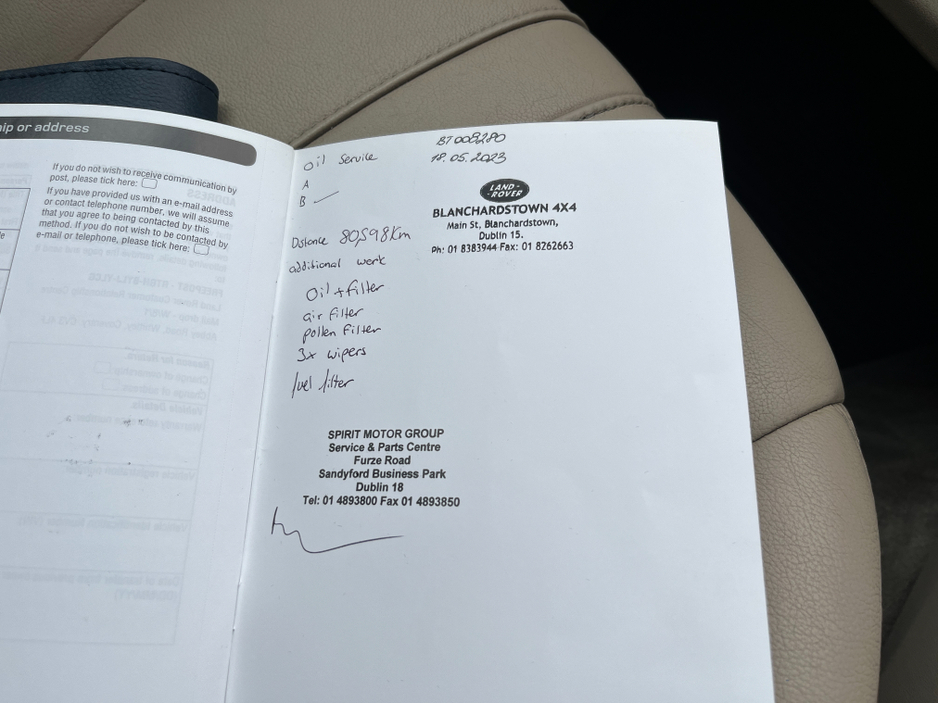 ip or address
If you do not wish to receive communication by
post, please tick here:
If you have provided us with an e-mail address
or contact telephone number, we will assume
that you agree to being contacted by this
method. If you do not wish to be contacted by
e-mail or telephone, please tick here:
BT008280
Oil Service
18.05.2023
A
B
LAND-
ROVER
BLANCHARDSTOWN 4X4
Main St, Blanchardstown,
Dublin 15.
Ph: 01 8383944 Fax: 01 8262663
Distance 80,598Km
additional work
Oil + filter
air filter
pollen filter
3x wipers
fuel filter
SPIRIT MOTOR GROUP
Service & Parts Centre
Furze Road
Sandyford Business Park
Dublin 18
Tel: 01 4893800 Fax 01 4893850